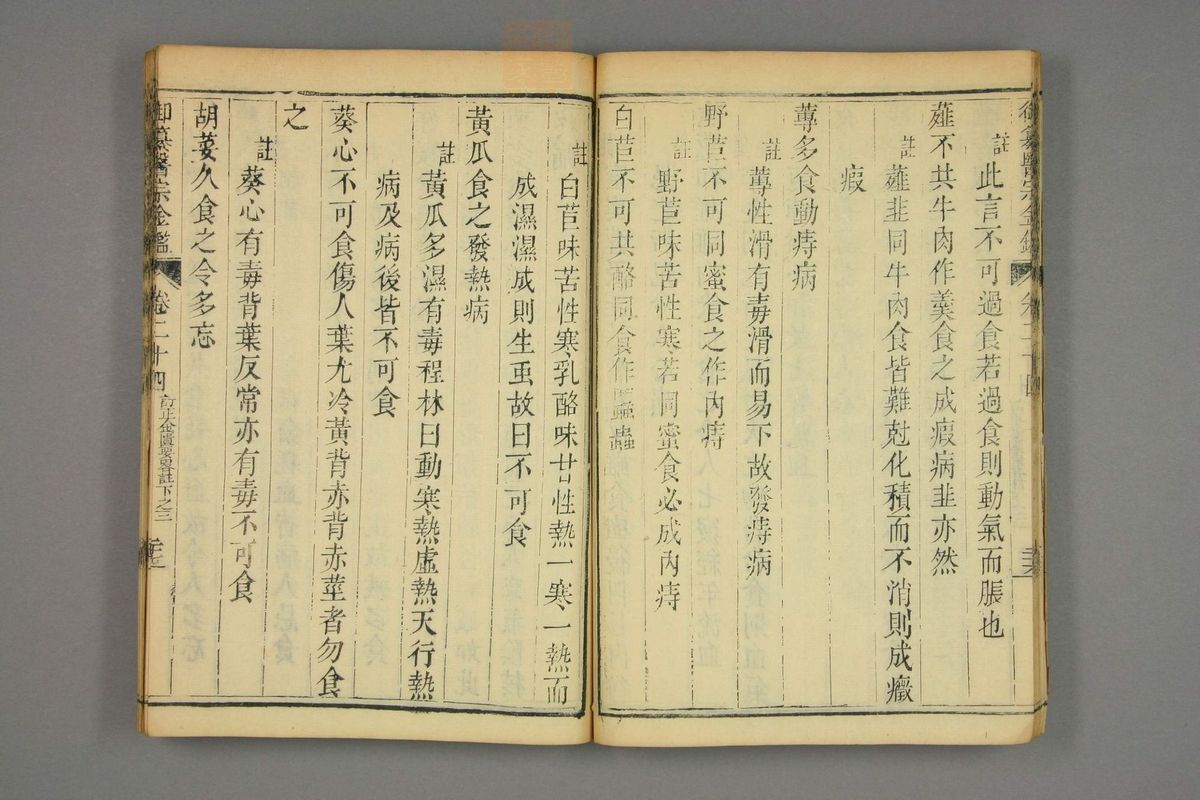 御纂醫宗金鑑 卷二十四
註此言不可過食若過食則動氣而脹也
薤不共牛肉作羹食之成瘕病韭亦然
註薤韭同牛肉食皆難尅化積而不消則成癥
瘕
蓴多食動痔病
註蓴性滑有毒滑而易下故發痔病
野苣不可同蜜食之作內痔
註野苣味苦性寒若同蜜食必成內痔
白苣不可共酪同食作䘌蟲
註白苣味苦性寒乳酪味甘性熱一寒一熱而
成濕濕成則生䖝故曰不可食
黃瓜食之發熱病
註黃瓜多濕有毒程林曰動寒熱虛熱天行熱
病及病後皆不可食
葵心不可食傷人葉尤冷黃背赤背赤莖者勿食
之
註葵心有毒背葉反常亦有毒不可食
胡荽久食之令多忘
御纂醫宗金鑑 卷二十四 訂正金匱要畧註下之三